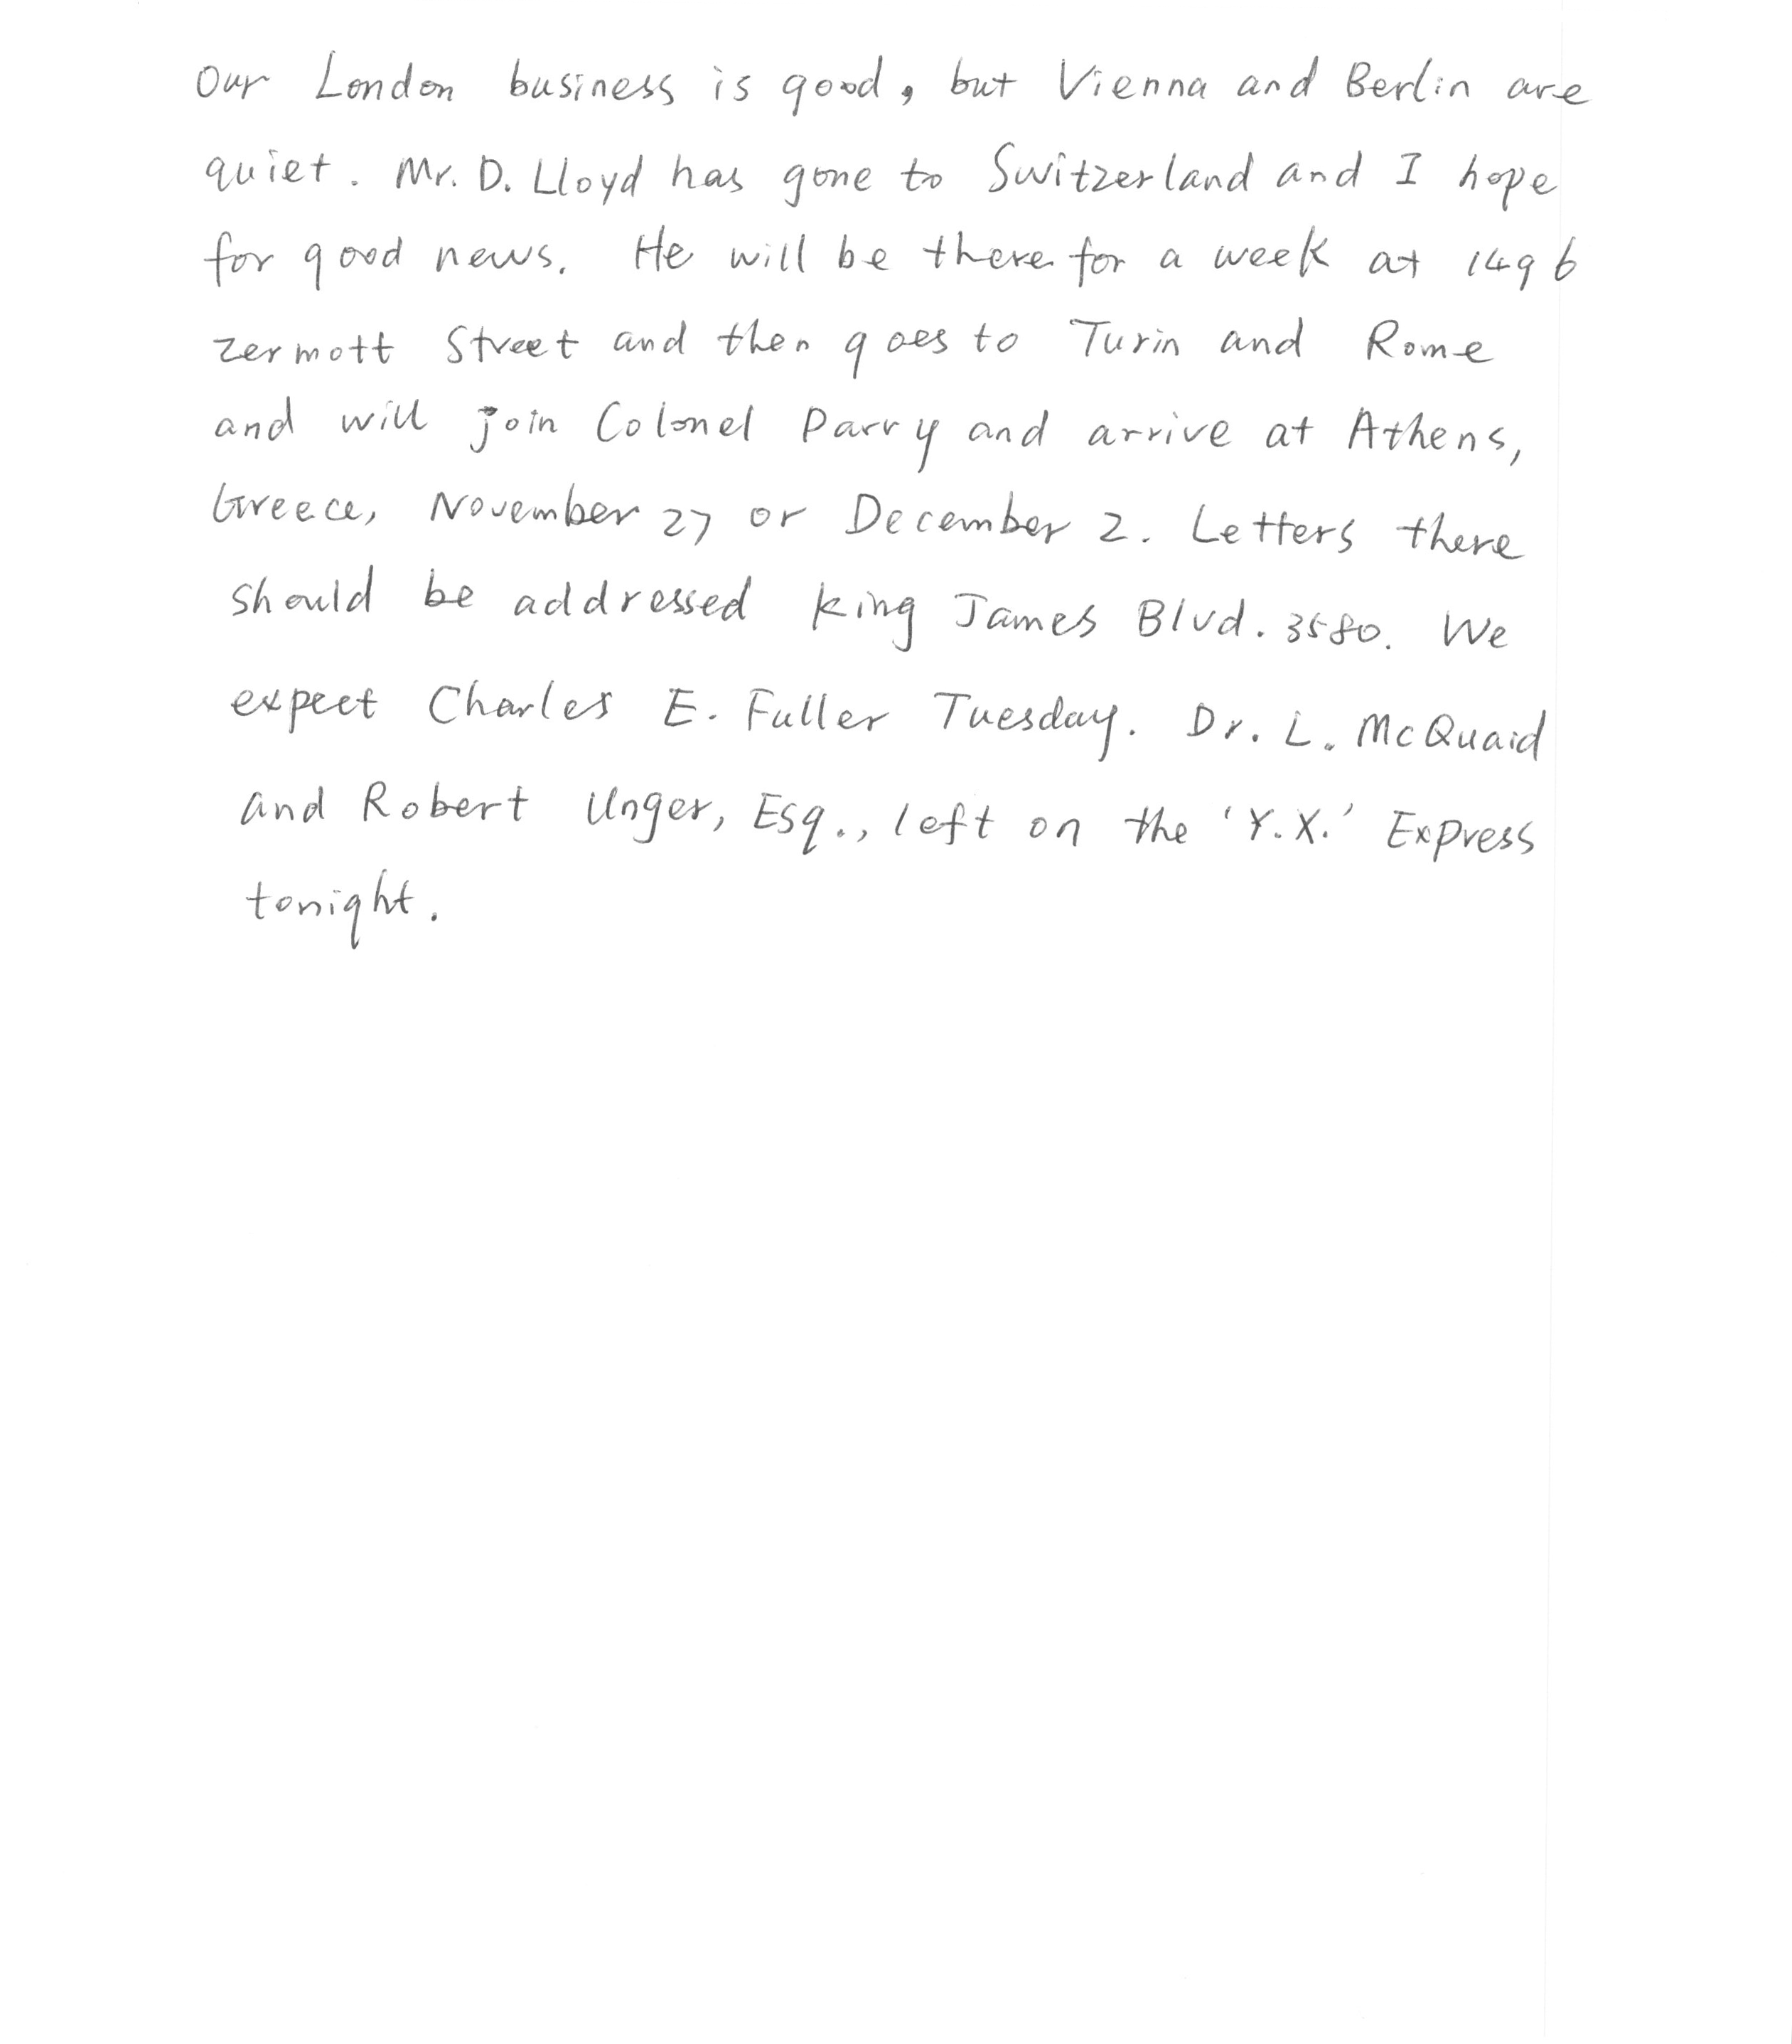 Our London business is good, but Vienna and Berlin are
quiet. Mr. D. Lloyd has gone to Switzerland and I hope
for good news. He will be there for a week at 1496
Zermott Street and then goes to Turin and Rome
and will join Colonel Parry and arrive at Athens,
Greece, November 27 or December 2. Letters there
should be addressed King James Blvd. 3580. We
expect Charles E. Fuller Tuesday. Dr. L. McQuaid
and Robert Unger, Esq., left on the 'Y.X.' Express
tonight.